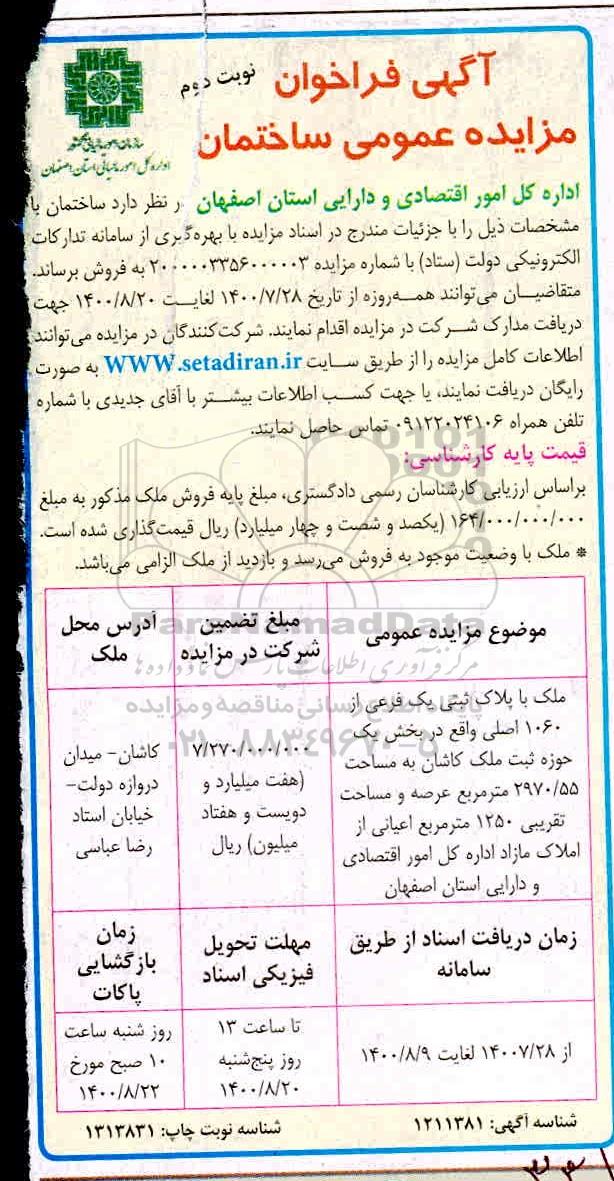 آگهی فراخوان
نوبت دوم
مزایده عمومی ساختمان
سازمان امور مالیاتی کشور
اداره کل امور مالیاتی استان اصفهان
اداره کل امور اقتصادی و دارایی استان اصفهان در نظر دارد ساختمان با
مشخصات ذیل را با جزئیات مندرج در اسناد مزایده با بهره‌گیری از سامانه تدارکات
الکترونیکی دولت (ستاد) با شماره مزایده ۲۰۰۰۰۰۳۳۵۶۰۰۰۰۰۳ به فروش برساند.
متقاضیان می‌توانند همه‌روزه از تاریخ ۱۴۰۰/۷/۲۸ لغایت ۱۴۰۰/۸/۲۰ جهت
دریافت مدارک شرکت در مزایده اقدام نمایند. شرکت‌کنندگان در مزایده می‌توانند
اطلاعات کامل مزایده را از طریق سایت WWW.setadiran.ir به صورت
رایگان دریافت نمایند، یا جهت کسب اطلاعات بیشتر با آقای جدیدی با شماره
تلفن همراه ۰۹۱۲۲۰۲۴۱۰۶ تماس حاصل نمایند.
قیمت پایه کارشناسی:
براساس ارزیابی کارشناسان رسمی دادگستری، مبلغ پایه فروش ملک مذکور به مبلغ
۱۶۴/۰۰۰/۰۰۰/۰۰۰ (یکصد و شصت و چهار میلیارد) ریال قیمت‌گذاری شده است.
* ملک با وضعیت موجود به فروش می‌رسد و بازدید از ملک الزامی می‌باشد.
موضوع مزایده عمومی
مبلغ تضمین
شرکت در مزایده
آدرس محل
ملک
ملک با پلاک ثبتی یک فرعی از
۱۰۶۰ اصلی واقع در بخش یک
حوزه ثبت ملک کاشان به مساحت
۲۹۷۰/۵۵ مترمربع عرصه و مساحت
تقریبی ۱۲۵۰ مترمربع اعیانی از
املاک مازاد اداره کل امور اقتصادی
و دارایی استان اصفهان
۷/۲۷۰/۰۰۰/۰۰۰
(هفت میلیارد و
دویست و هفتاد
میلیون) ریال
کاشان- میدان
دروازه دولت-
خیابان استاد
رضا عباسی
زمان دریافت اسناد از طریق
سامانه
مهلت تحویل
فیزیکی اسناد
زمان
بازگشایی
پاکات
از ۱۴۰۰۷/۲۸ لغایت ۱۴۰۰/۸/۹
تا ساعت ۱۳
روز پنج‌شنبه
۱۴۰۰/۸/۲۰
روز شنبه ساعت
۱۰ صبح مورخ
۱۴۰۰/۸/۲۲
شناسه آگهی: ۱۲۱۱۳۸۱
شناسه نوبت چاپ: ۱۳۱۳۸۳۱
ParsNamadData
مرکز فرآوری اطلاعات پارس نماد داده ها
پایگاه اطلاع رسانی مناقصه و مزایده
۰۲۱-۸۸۳۴۹۶۷۰-۵